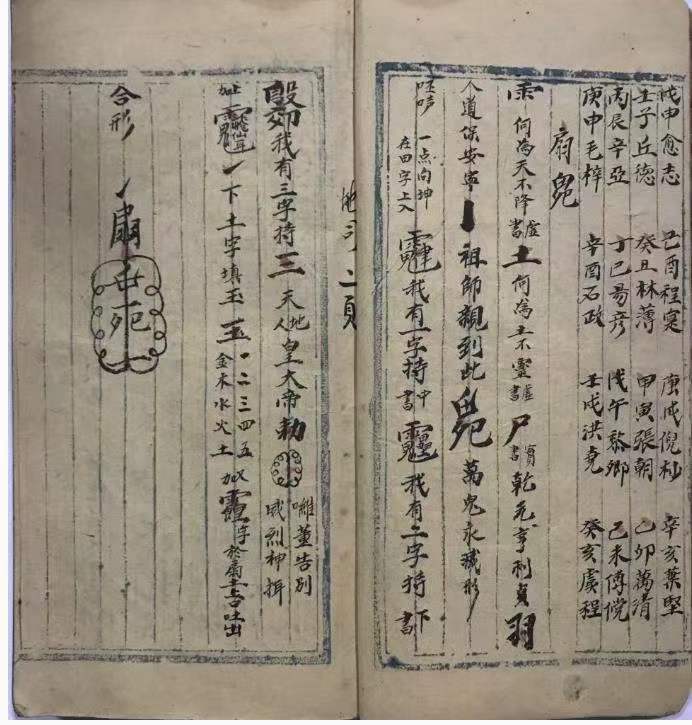 戊申愈志 己酉程寔 庚戌倪杉 辛亥葉堅
壬子丘德 癸丑林薄 甲寅張朝 乙卯萬清
丙辰辛亞 丁巳昜彦 戊午黎卿 己未傅
庚申毛梓 辛酉石政 壬戌洪堯 癸亥虞程
扇
何為天不降 虛書 土 何為土不靈 虛書 尸 實書 乾元亨利貞 羽
人道保安寧 丨 祖師親到此 萬鬼永藏形
呸哆 一点向坤 在田字上入 我有一字持 中書 我有二字持 下書
地司 二頁
我有三字持 三 天地人 皇大帝勅 唯董告別 威烈神揖
加 下土字填玉 玉 一二三四五 金木水火土 加 字於扇 吐出
合形